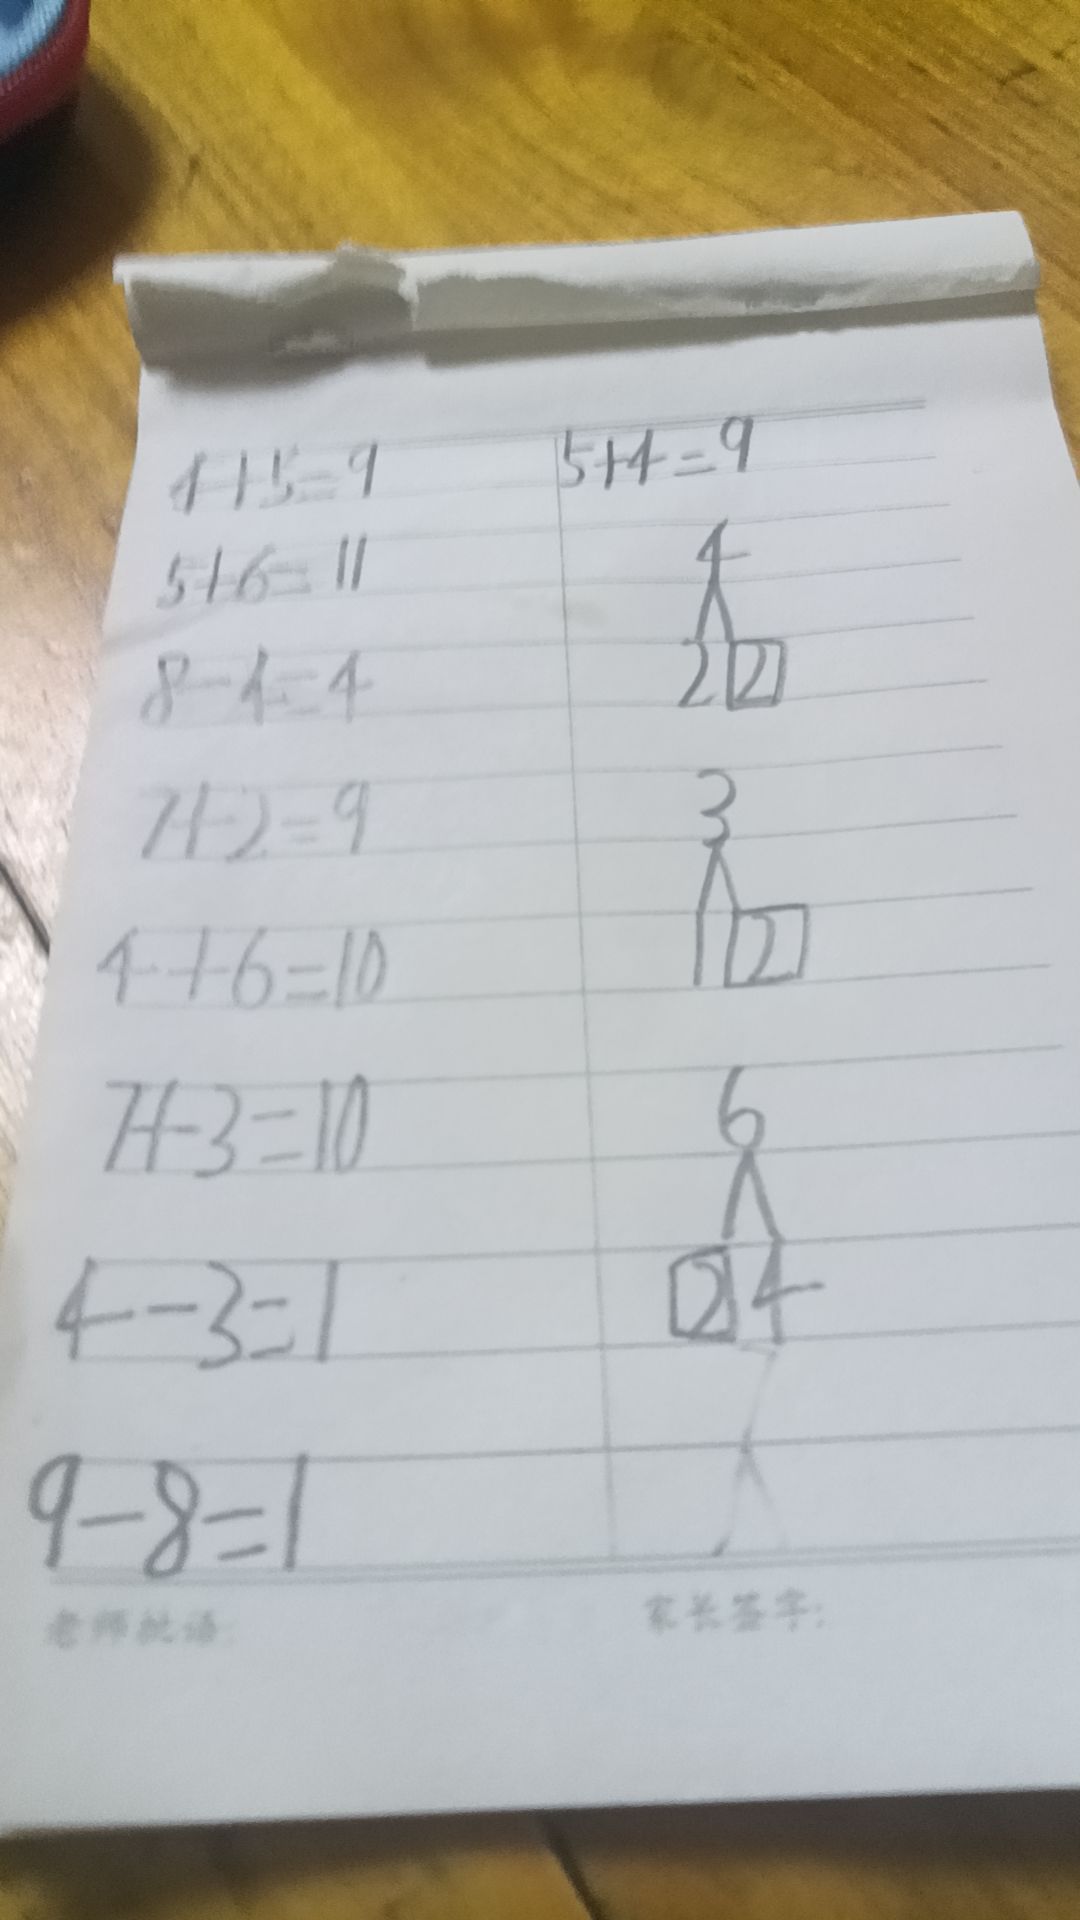 4+5=9
5+6=11
8-4=4
7+2=9
4+6=10
7+3=10
4-3=1
9-8=1
5+4=9
4
2 2
3
1 2
6
2 4
老师批语:
家长签字: